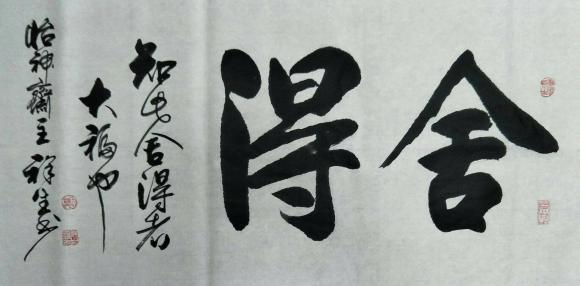 舍得
知此舍得者
大福也
怡神齋主祥生书